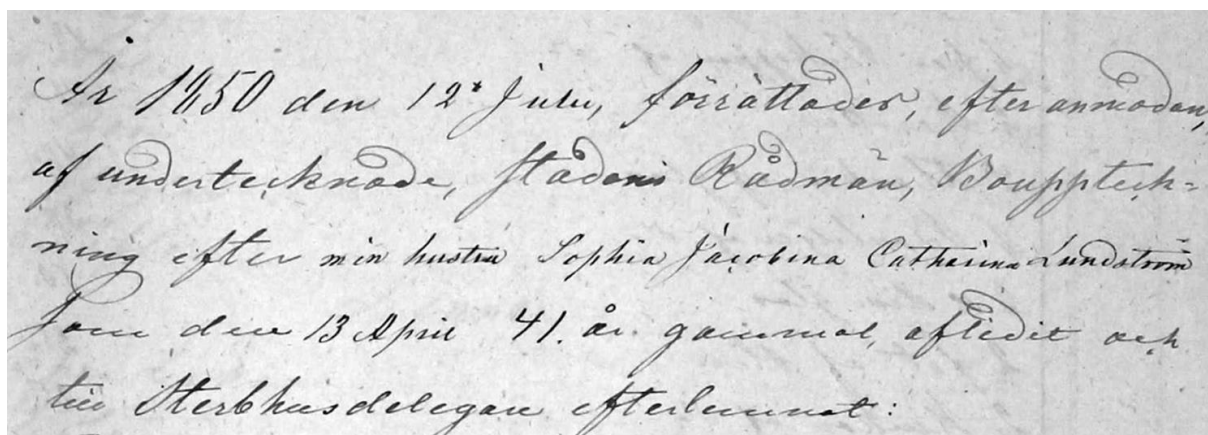 År 1850 den 12ᵗ Juli, förrättades, efter anmodan,
af undertecknade, stadens Rådmän, Bouppteck=
ning efter min hustru Sophia Jacobina Catharina Lundström
som den 13 April 41. år gammal, aflidit och
till Sterbhusdelegare efterlemnat: